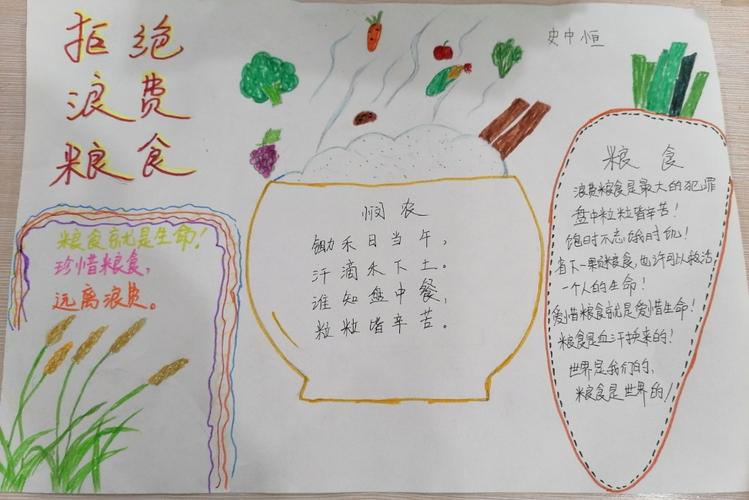 拒绝
浪费
粮食
史中恒
粮食就是生命！
珍惜粮食，
远离浪费。
悯农
锄禾日当午，
汗滴禾下土。
谁知盘中餐，
粒粒皆辛苦。
粮食
浪费粮食是最大的犯罪
盘中粒粒皆辛苦！
饱时不忘饿时饥！
省下一颗粮食，也许可以救活
一个人的生命！
爱惜粮食就是爱惜生命！
粮食是血汗换来的！
世界是我们的，
粮食是世界的！